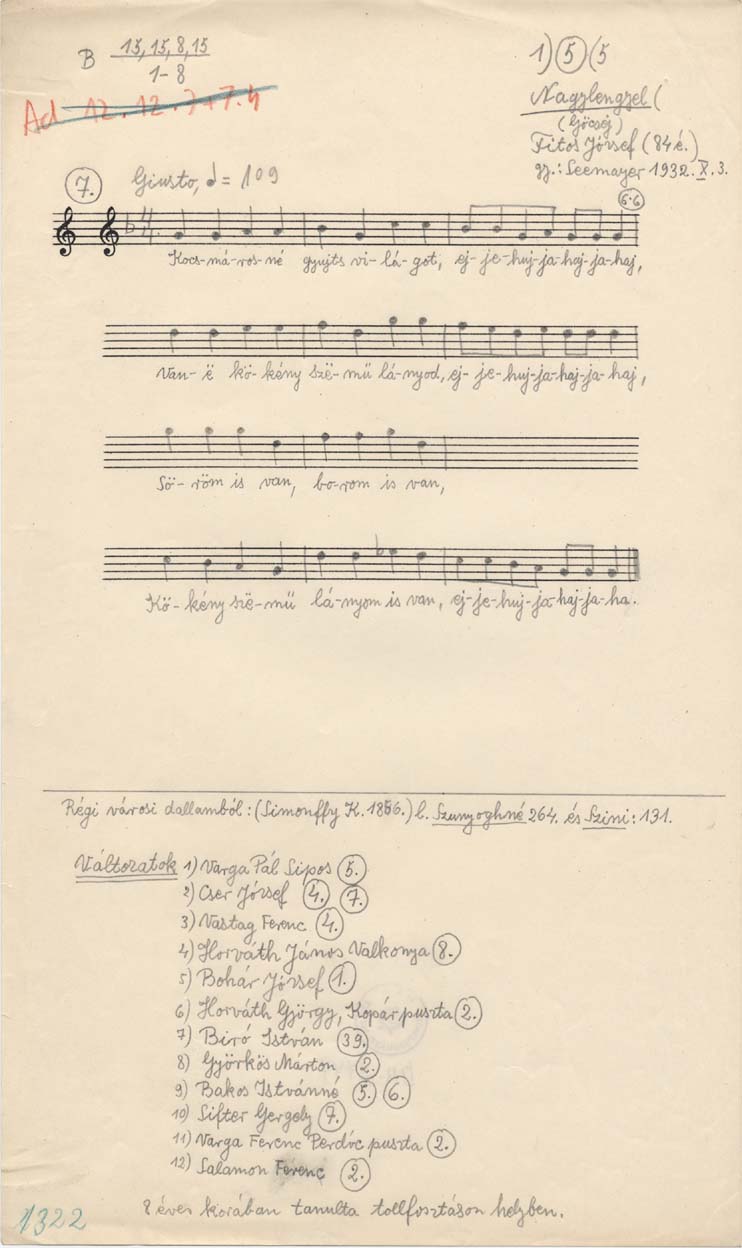 B 15, 15, 8, 15
1–8
Ad 12. 12. 7+7. 4
1) 5 (5
Nagylengyel (
(Göcsej)
Fitos József (84 é.)
gy.: Seemayer 1932. X. 3.
7. Giusto, = 109
6·6
4/4.
Kocs-má-ros-né gyujts vi-lá-got, ej-je-huj-ja-haj-ja-haj,
Van-ë kö-kény szë-mű lá-nyod, ej-je-huj-ja-haj-ja-haj,
Sö-röm is van, bo-rom is van,
Kö-kény szë-mű lá-nyom is van, ej-je-huj-ja-haj-ja-ha.
Régi városi dallamból: (Simonffy K. 1856.) l. Szunyoghné 264. és Szini: 131.
Változatok 1) Varga Pál Sipos 5.
2) Cser József 4. 7.
3) Vastag Ferenc 4.
4) Horváth János Valkonya 8.
5) Bohár József 1.
6) Horváth György, Kopár puszta 2.
7) Biró István 39.
8) Györkös Márton 2.
9) Bakos Istvánné 5. 6.
10) Sifter Gergely 7.
11) Varga Ferenc Perdóc puszta 2.
12) Salamon Ferenc 2.
8 éves korában tanulta tollfosztáson helyben.
1322